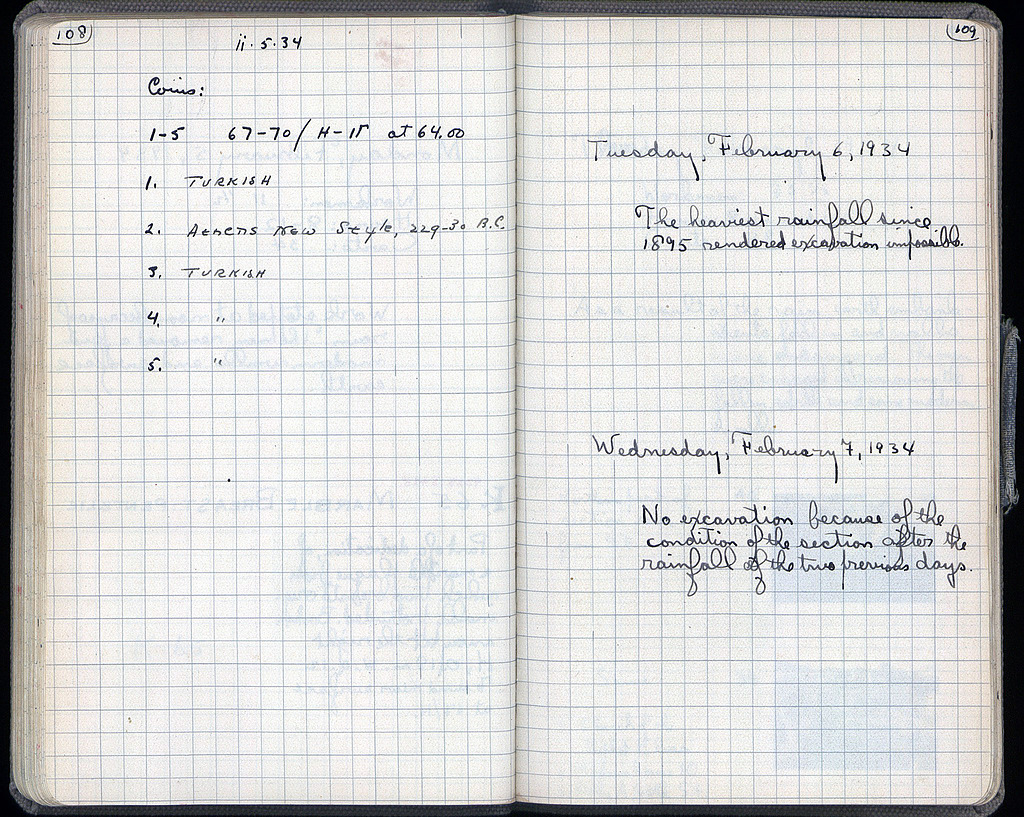 108
ii · 5 · 34
Coins:
1-5 67-70 / H-IS at 64.00
1. TURKISH
2. ATHENS NEW Style, 229-30 B.C.
3. TURKISH
4. "
5. "
109
Tuesday, February 6, 1934
The heaviest rainfall since
1895 rendered excavation impossible.
Wednesday, February 7, 1934
No excavation because of the
condition of the section after the
rainfall of the two previous days.